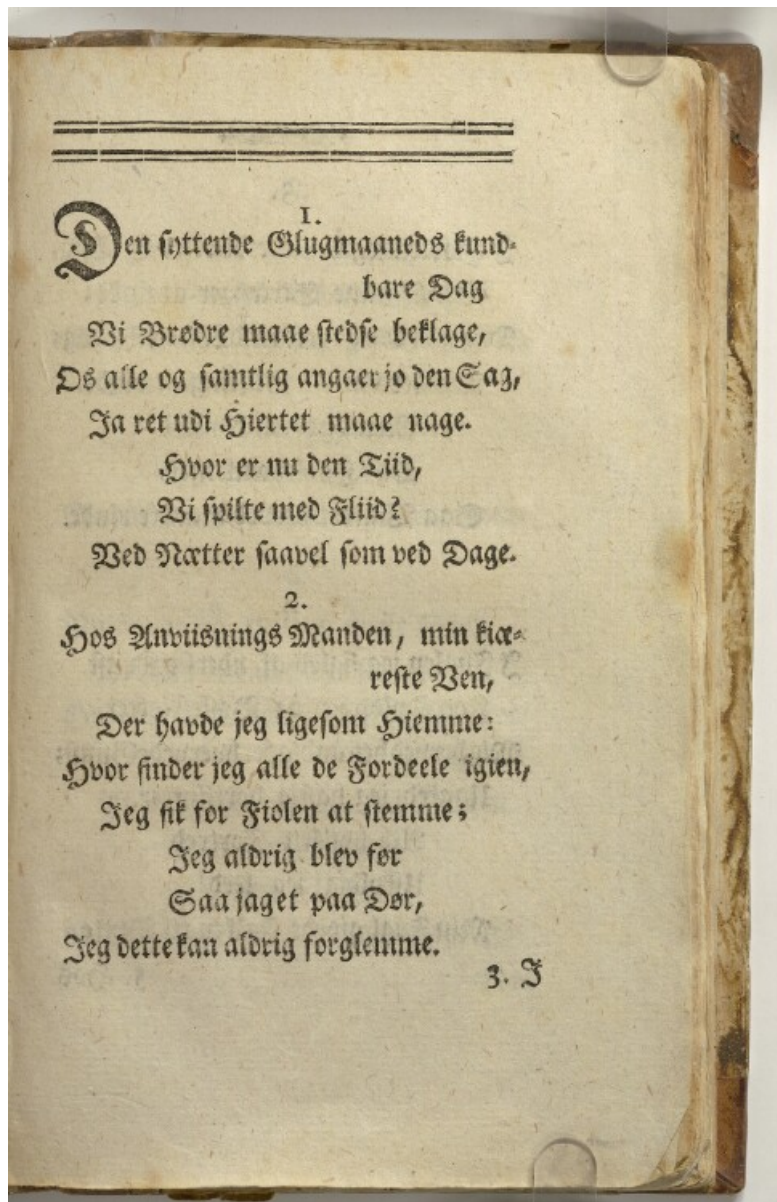 1.
Den syttende Glugmaaneds kund-
bare Dag
Vi Brødre maae stedse beklage,
Os alle og samtlig angaer jo den Sag,
Ja ret udi Hiertet maae nage.
Hvor er nu den Tiid,
Vi spilte med Fliid?
Ved Nætter saavel som ved Dage.
2.
Hos Anviisnings Manden, min kiæ-
reste Ven,
Der havde jeg ligesom Hiemme:
Hvor finder jeg alle de Fordeele igien,
Jeg fik for Fiolen at stemme;
Jeg aldrig blev før
Saa jaget paa Dør,
Jeg dette kan aldrig forglemme.
3. J